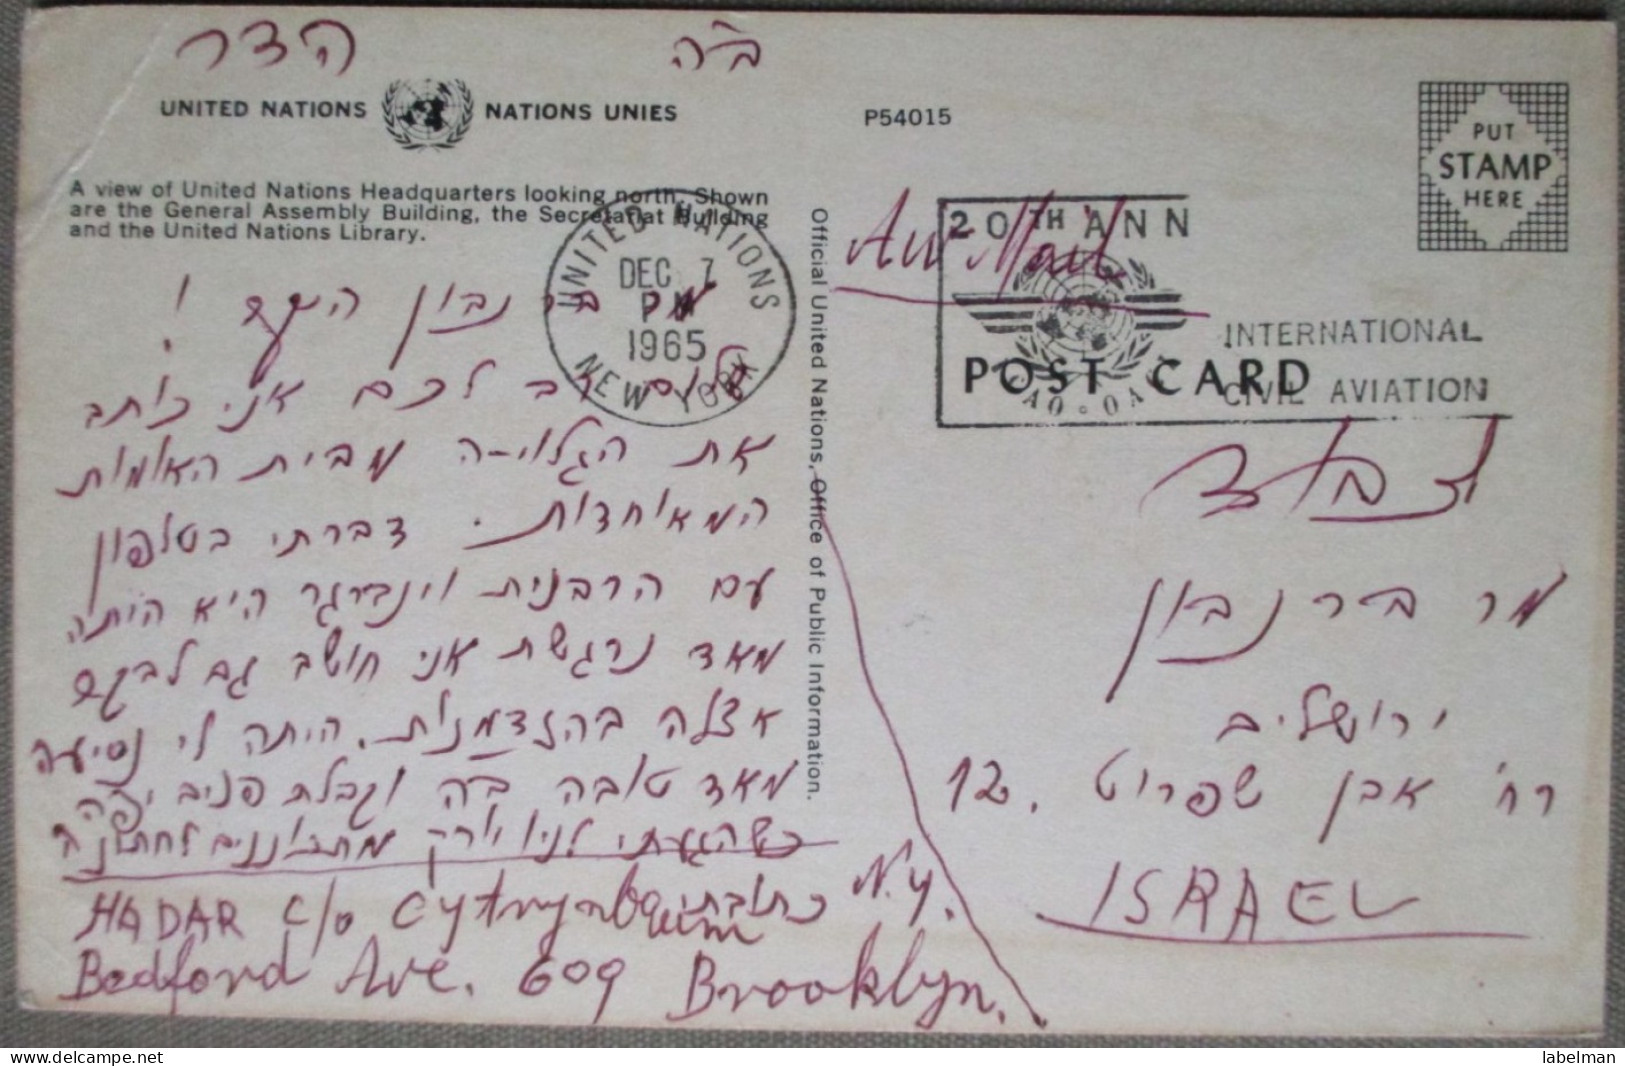 ב"ה
הדר
UNITED NATIONS NATIONS UNIES
A view of United Nations Headquarters looking north. Shown
are the General Assembly Building, the Secretariat Building
and the United Nations Library.
מר בר נבון היקר !
שלום רב לכם אני כותב
את הגלוי-ה מבית האומות
המאוחדות. דברתי בטלפון
עם הרבנית וינברגר היא היתה
מאד נרגשת אני חושב גם לבקר
אצלה בהזדמנות. היתה לי נסיעה
מאד טובה ב"ה וקבלת פנים יפה
כשהגעתי לניו יורק
כתובתי
HADAR c/o Cytrynbaum
Bedford Ave. 609 Brooklyn.
N.Y.
Official United Nations, Office of Public Information.
UNITED NATIONS
DEC 7
PM
1965
NEW YORK
P54015
PUT
STAMP
HERE
Air Mail
20TH ANN
INTERNATIONAL
CIVIL AVIATION
POST CARD
לכבוד
מר בר נבון
ירושלים
רח' אבן שפרוט 12.
ISRAEL
labelman
delcampe.net